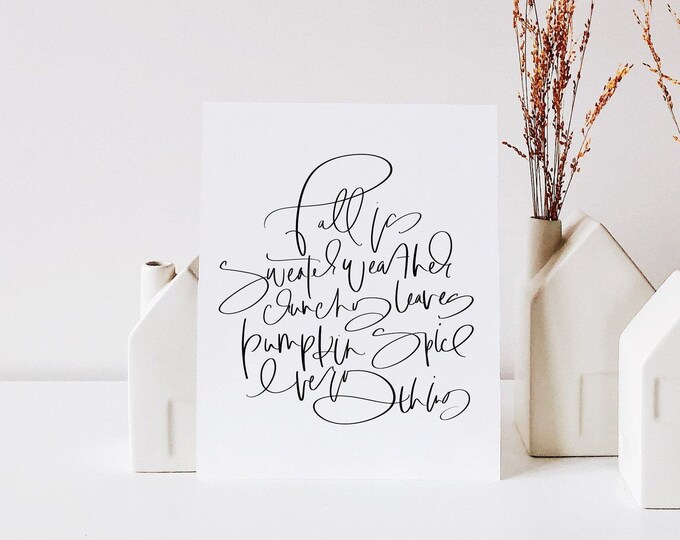 Fall is
sweater weather
crunchy leaves
pumpkin spice
every
thing